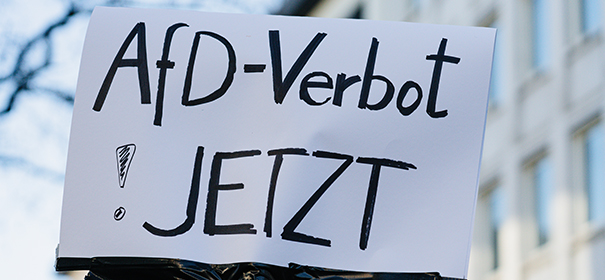 AfD-Verbot
! JETZT